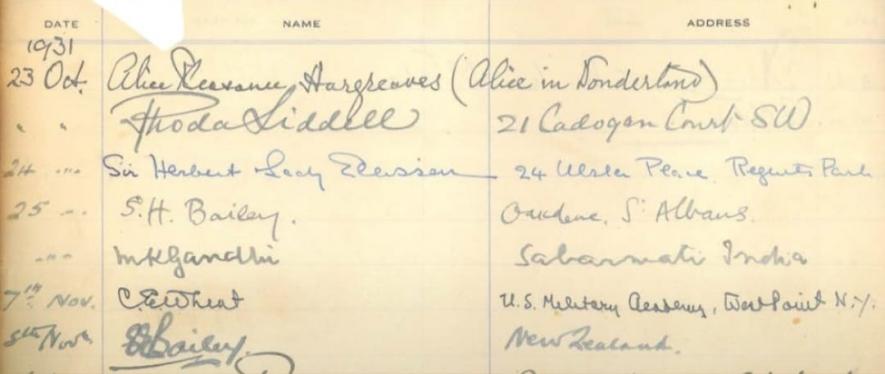 DATE NAME ADDRESS
1931
23 Oct. Alice Pleasance Hargreaves (Alice in Wonderland)
" " Rhoda Liddell 21 Cadogan Court SW
24 " " Sir Herbert Lady 24 Ulster Place Regents Park
25 " S. H. Bailey. Oakdene, St Albans.
" " MKGandhi Sabarmati India
7th Nov. C.E.Wheat U.S. Military Academy, West Point N.Y.
8th Nov. Bailey. New Zealand.